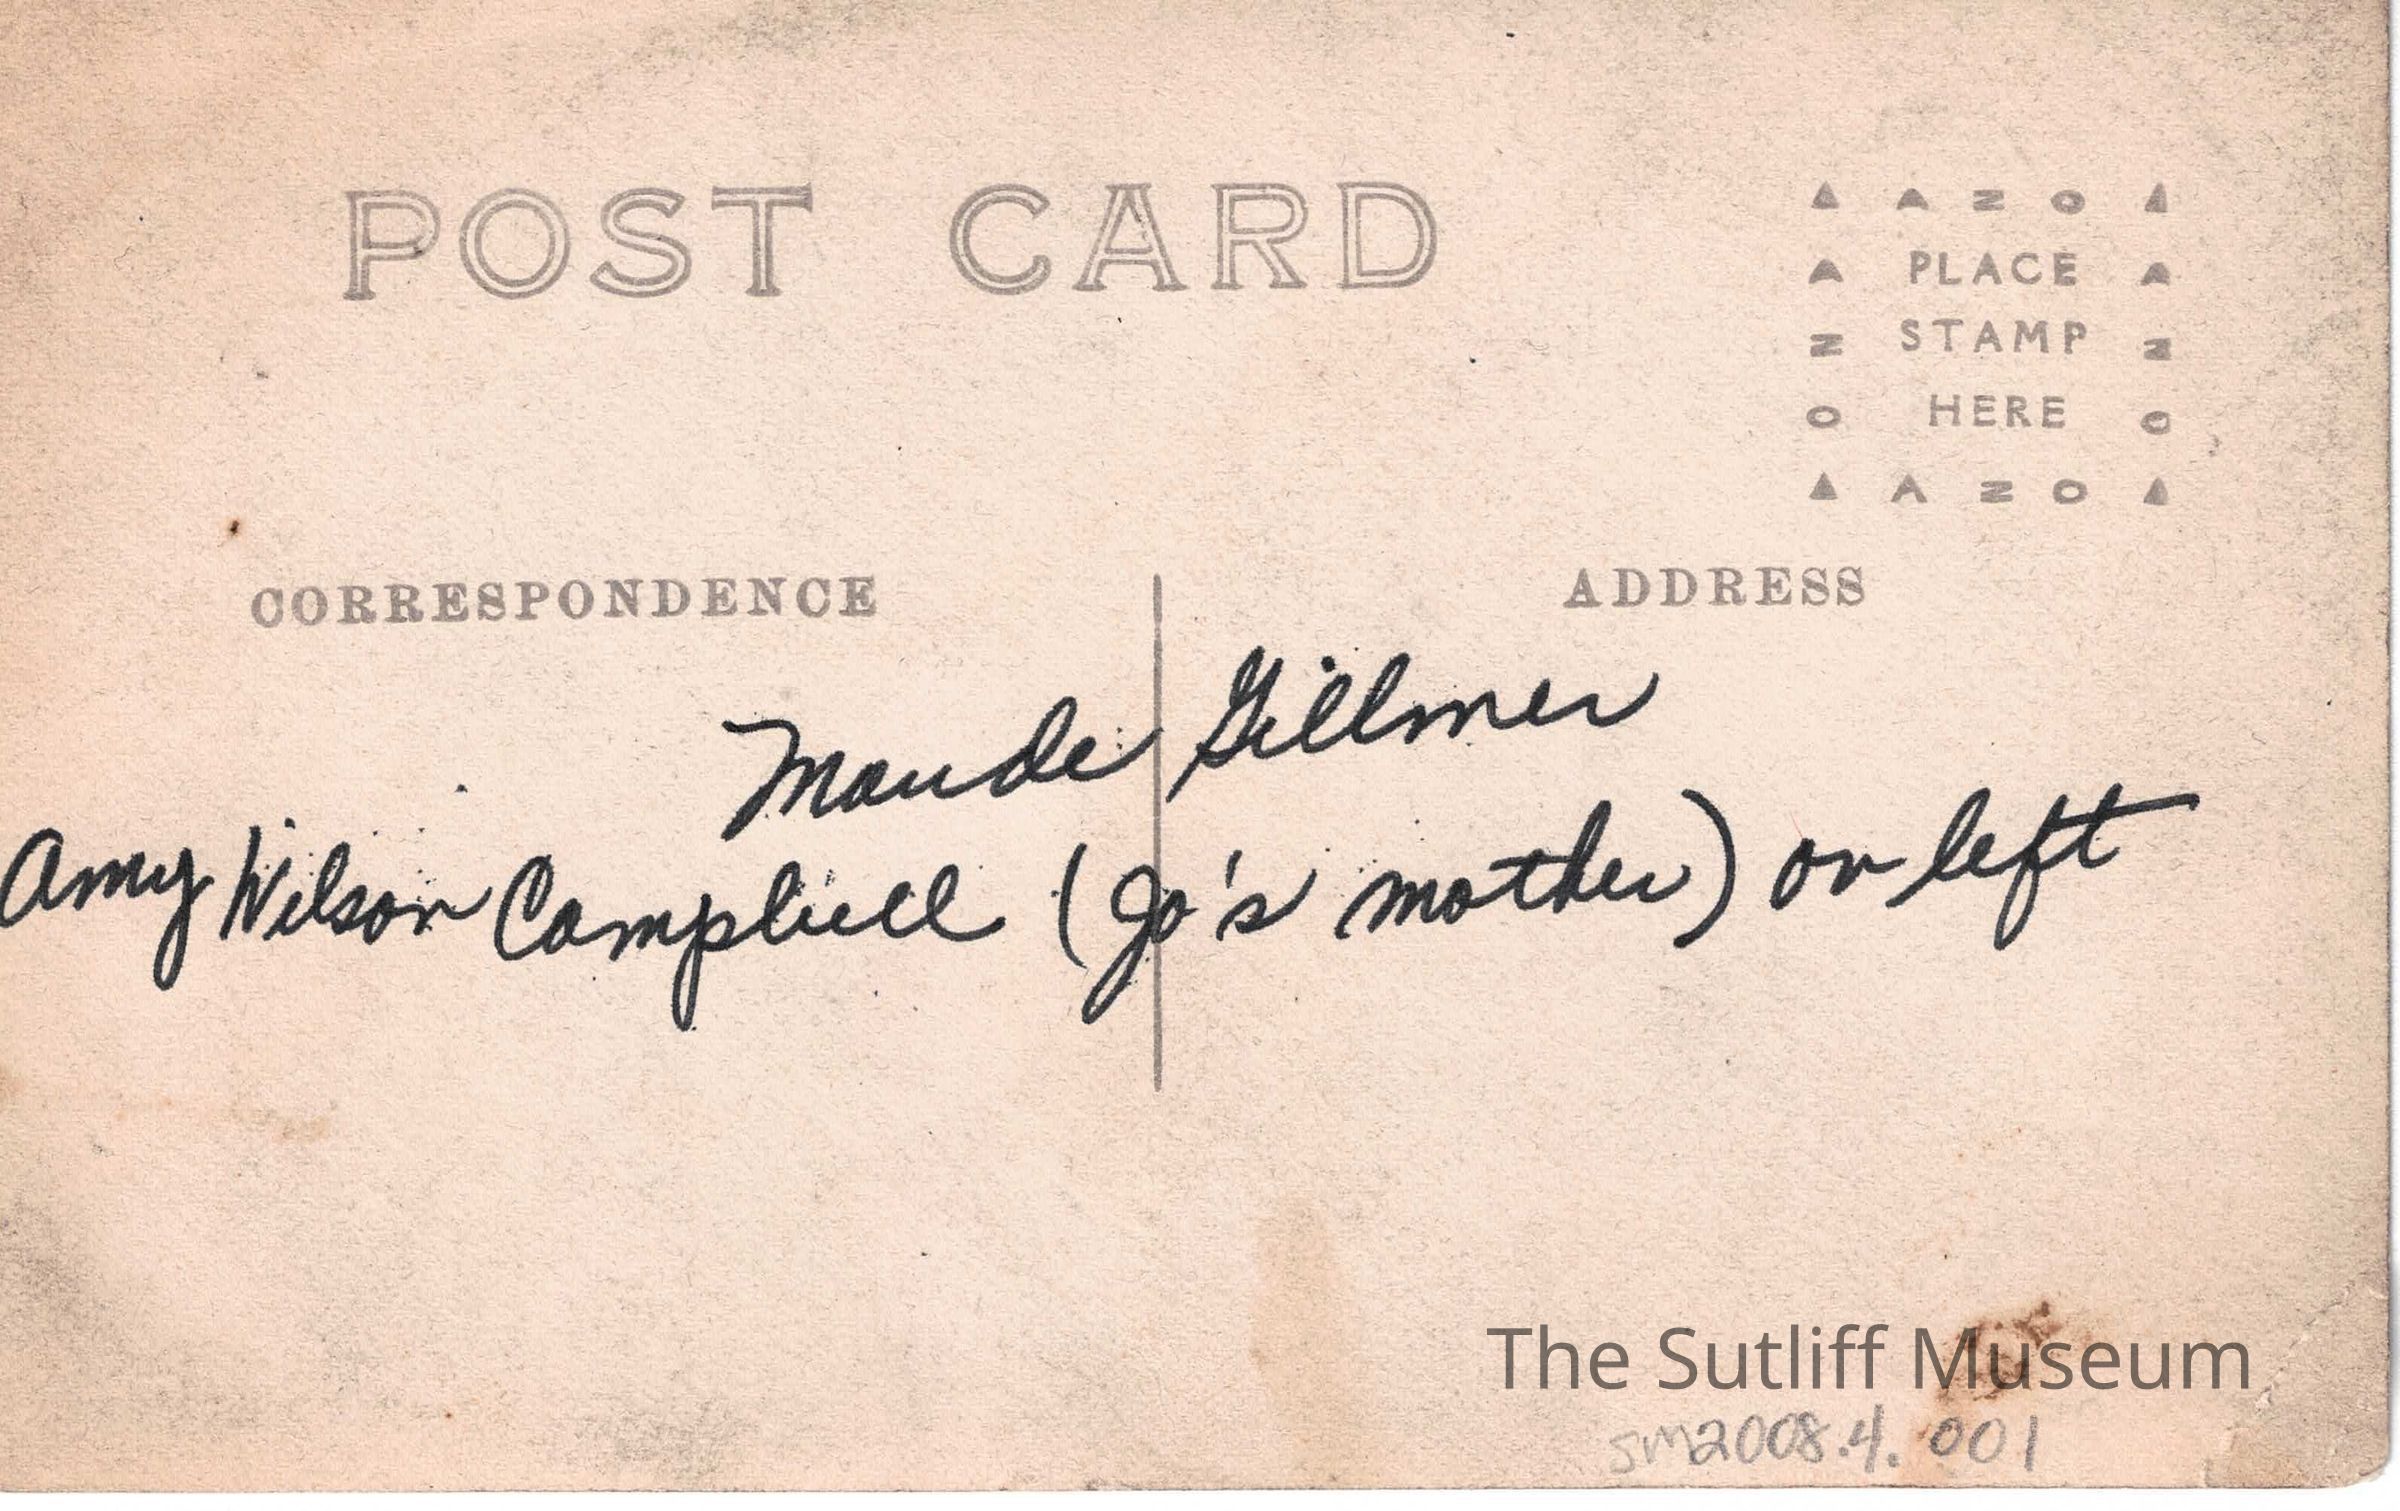 POST CARD
AZO
PLACE
STAMP
HERE
AZO
AZO
AZO
CORRESPONDENCE
ADDRESS
Maude Gillmer
Amy Wilson Campbell (Jo's mother) on left
The Sutliff Museum
SM2008.4.001